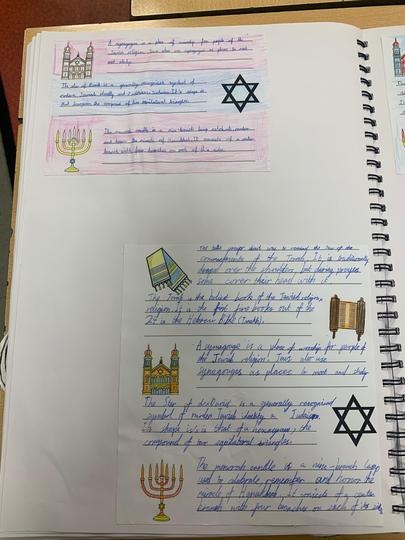 A synagogue is a place of worship for people of the
Jewish religion. Jews also use synagogues as places to meet
and study.
The Star of David is a generally recognised symbol of
modern Jewish identity and Judaism. It's shape is
that hexagram: the compound of two equilateral triangles.
The menorah candle is a nine-branch lamp celebrate remember
and honor the miracle of Hanukkah. It consists of a center
branch with four branches on each of its sides.
The tallit prayer shawl way to remind the Jew of the
commandments of the Torah. It is traditionally
draped over the shoulders, but during prayers
some cover their head with it.
The Torah is the holiest book of the Jewish religion,
religion. It is the first five books out of the
24 in the Hebrew Bible (Tanakh).
A synagogue is a place of worship for people of
the Jewish religion. Jews also use
synagogues as places to meet and study
The Star of David is a generally recognised
symbol of modern Jewish identity a Judaism.
It's shape is that of a hexagram: the
compound of two equilateral triangles.
The menorah candle is a nine-branch lamp
used to celebrate remember and honor the
miracle of Hanukkah. It consists of a center
branch with four branches on each of its sid